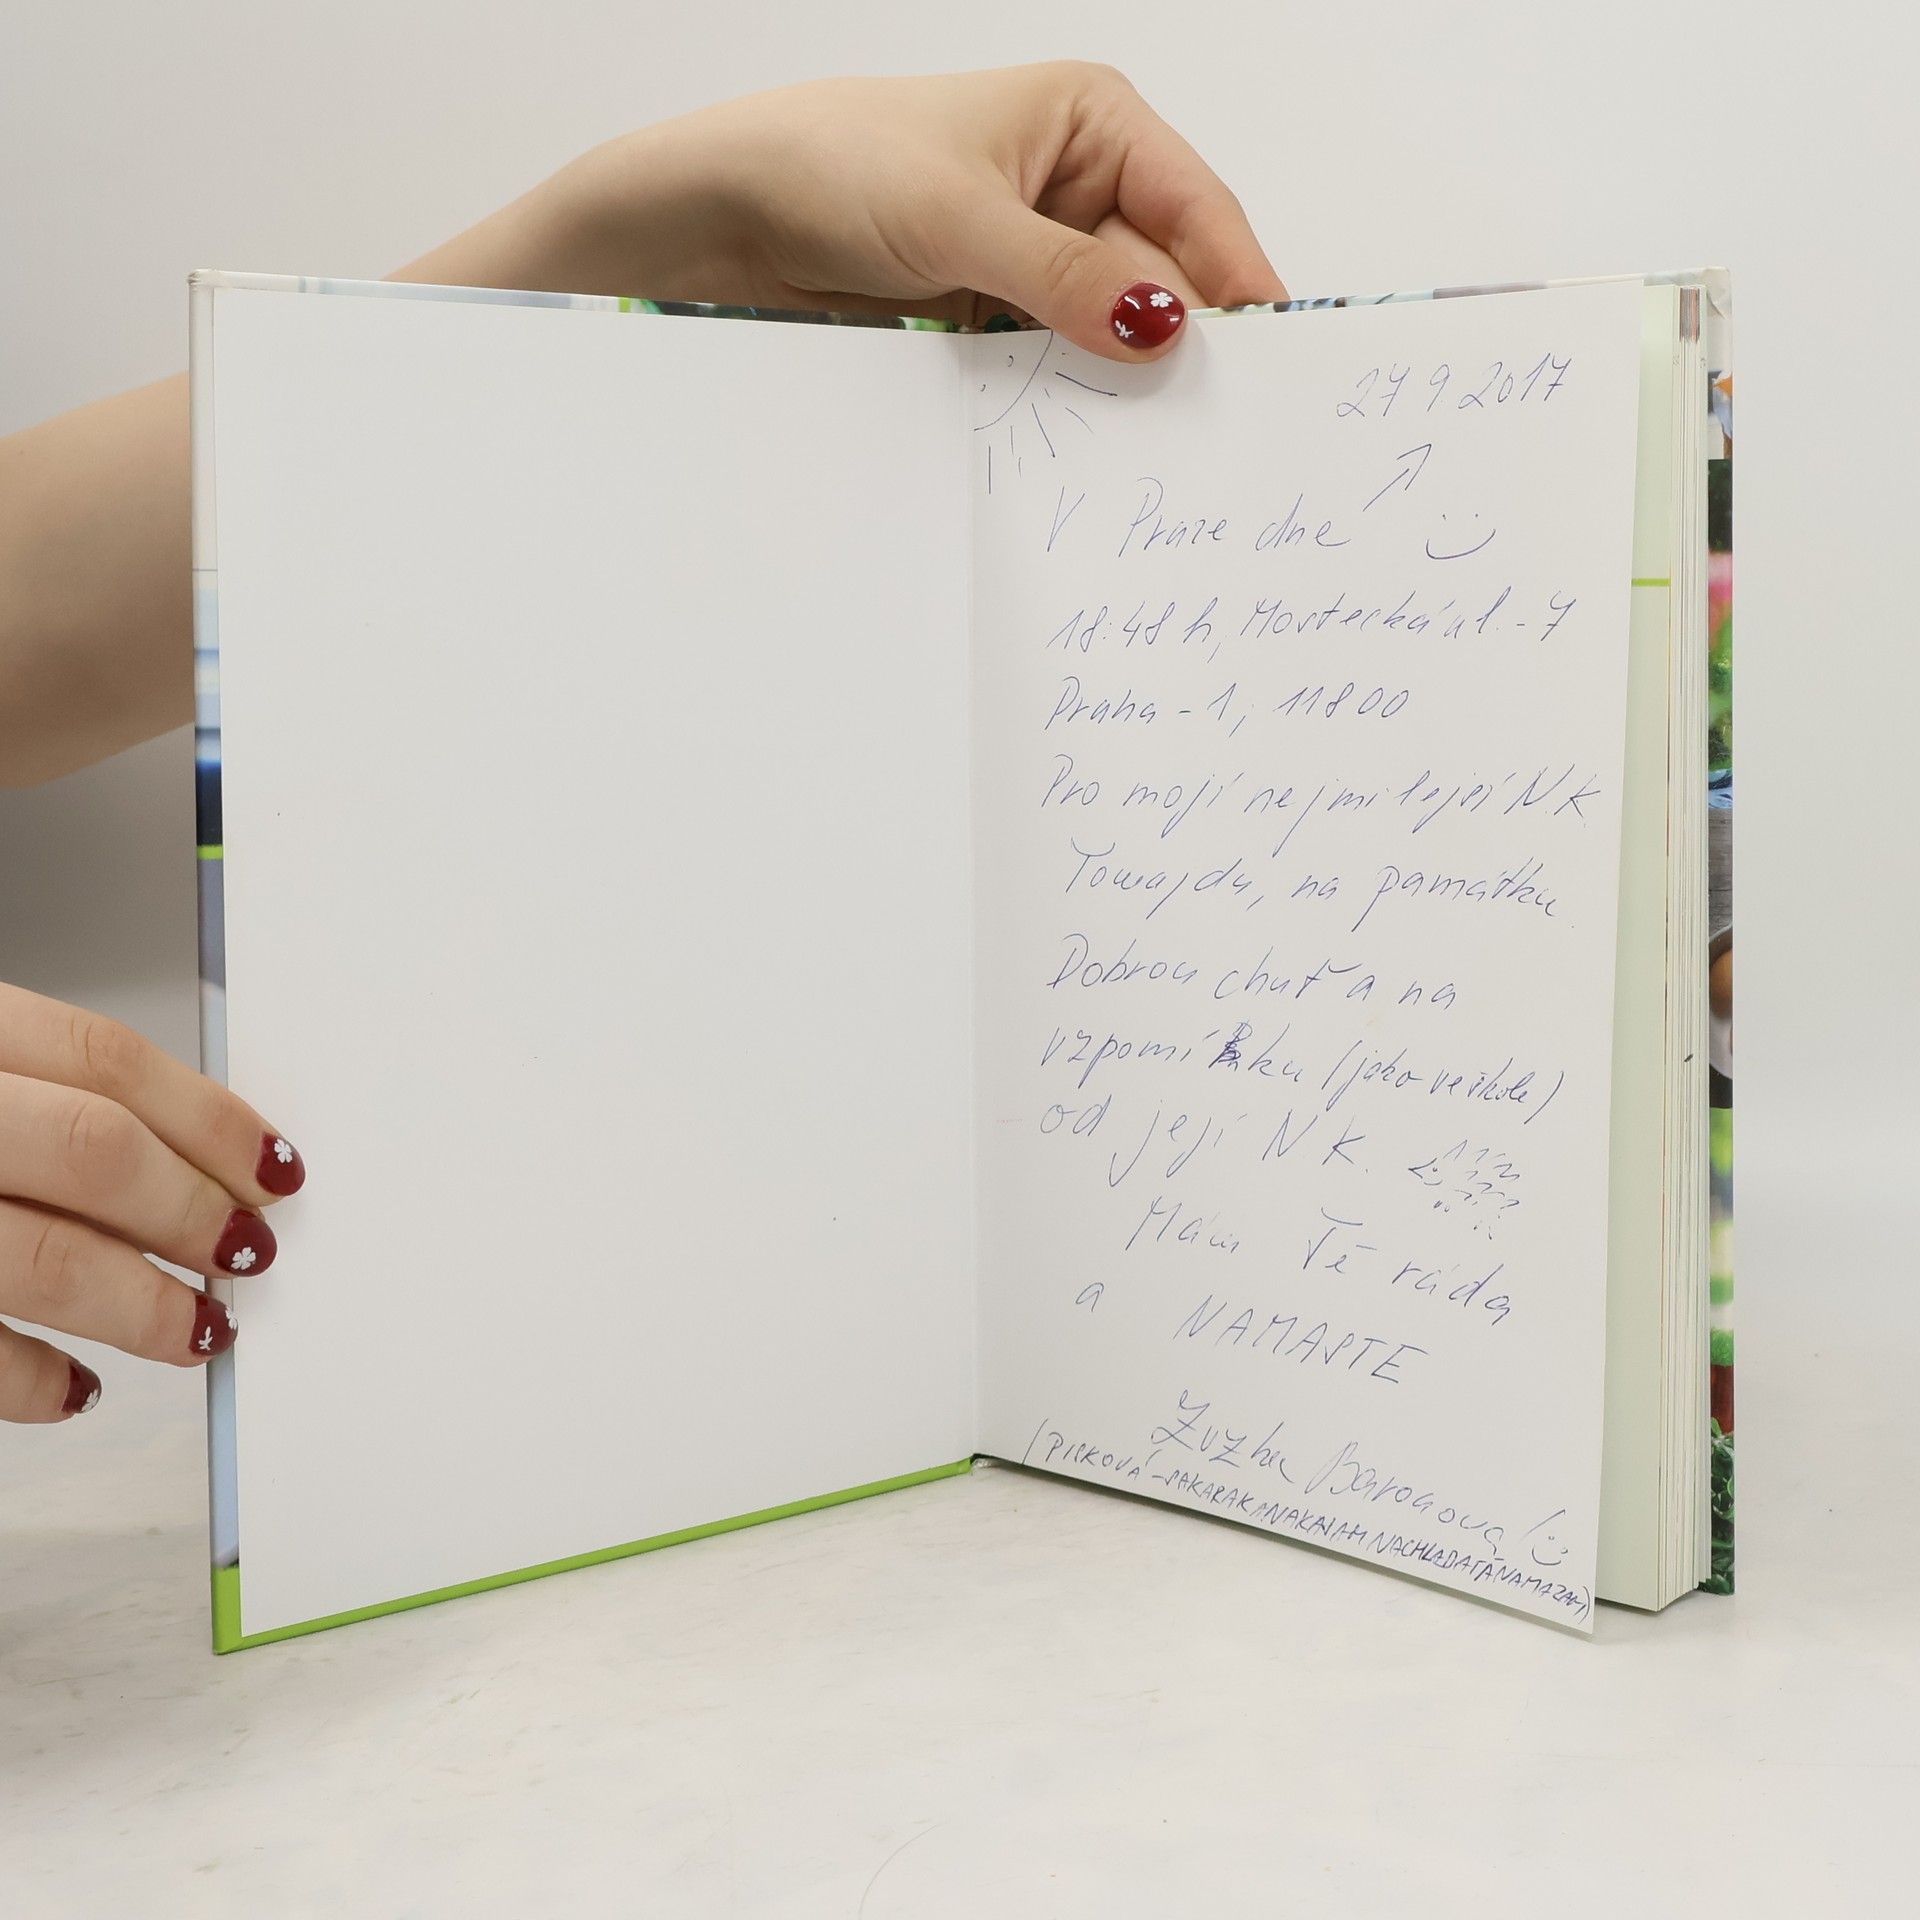 27 9. 2017
V Praze dne
18:48 h, Mostecká ul. - 7
Praha - 1, 11800
Pro mojí nejmilejší N.K.
na památku.
Dobrou chuť a na
vzpomínku (jako ve škole)
od její N.K.
Mám Tě ráda
a NAMASTE
Zuzka Baronova
(PISKOVÁ -